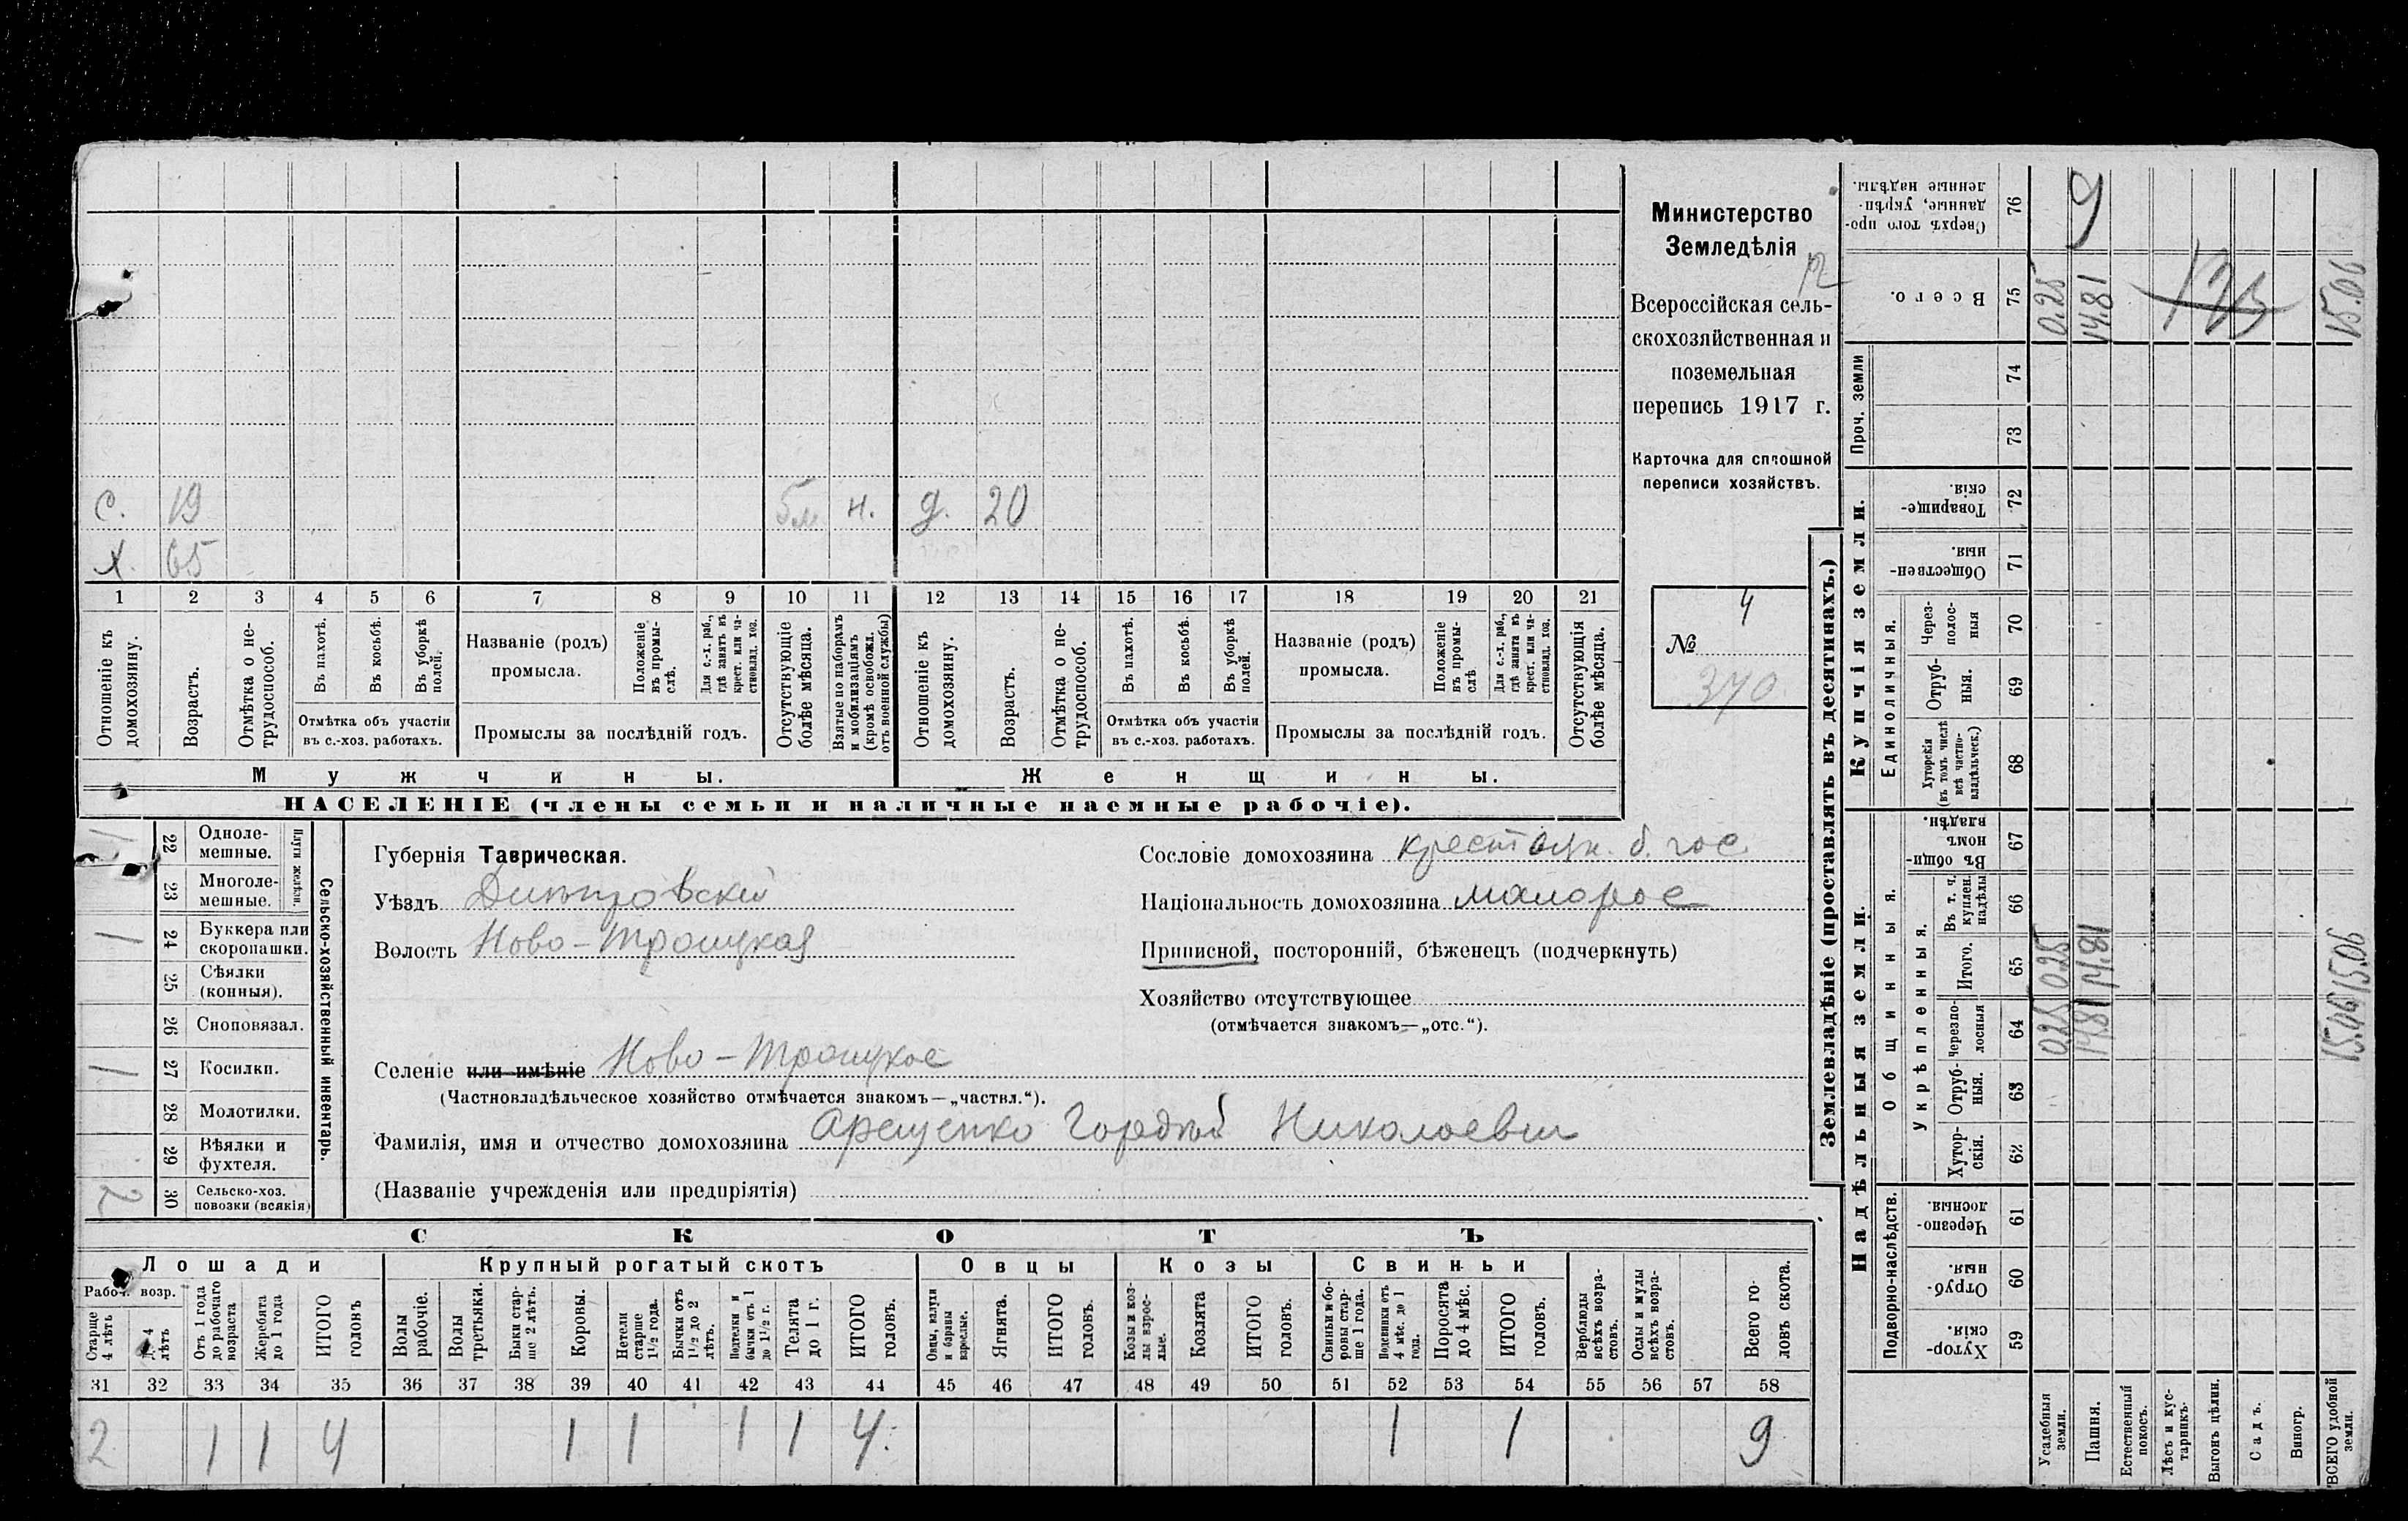 Министерство
Земледѣлія
Всероссійская сель-
скохозяйственная и
поземельная
перепись 1917 г.
Карточка для сплошной
переписи хозяйствъ.
4
№
370
с. 19 н. д. 20
х. 65
1 2 3 4 5 6 7 8 9 10 11 12 13 14 15 16 17 18 19 20 21
Отношеніе къ домохозяину.
Возрастъ.
Отмѣтка о не-трудоспособ.
Въ пахотѣ.
Въ косьбѣ.
Въ уборкѣ полей.
Отмѣтка объ участіи
въ с.-хоз. работахъ.
Названіе (родъ)
промысла.
Положеніе въ промы-слѣ.
Для с.-х. раб., гдѣ занятъ въ крест. или ча-стновлад. хоз.
Промыслы за послѣдній годъ.
Отсутствующіе болѣе мѣсяца.
Взятые по наборамъ и мобилизаціямъ (кромѣ освобожд. отъ военной службы)
Отношеніе къ домохозяину.
Возрастъ.
Отмѣтка о не-трудоспособ.
Въ пахотѣ.
Въ косьбѣ.
Въ уборкѣ полей.
Отмѣтка объ участіи
въ с.-хоз. работахъ.
Названіе (родъ)
промысла.
Положеніе въ промы-слѣ
Для с.-х. раб., гдѣ занята въ крест. или ча-стновлад. хоз.
Промыслы за послѣдній годъ.
Отсутствующія болѣе мѣсяца.
Мужчины.
Женщины.
НАСЕЛЕНІЕ (члены семьи и наличные наемные рабочіе).
Сельско-хозяйственный инвентарь.
Плуги желѣзн.
1 22 Одноле-мешные.
23 Многоле-мешные.
1 24 Буккера или скоропашки.
25 Сѣялки (конныя).
26 Сноповязал.
1 27 Косилки.
28 Молотилки.
29 Вѣялки и фухтеля.
2 30 Сельско-хоз. повозки (всякія)
Губернія Таврическая.
Уѣздъ Днѣпровскій
Волость Ново-Троицкая
Сословіе домохозяина крестьян. б. гос.
Національность домохозяина малорос
Приписной, посторонній, бѣженецъ (подчеркнуть)
Хозяйство отсутствующее
(отмѣчается знакомъ—„отс.“).
Селеніе или имѣніе Ново-Троицкое
(Частновладѣльческое хозяйство отмѣчается знакомъ—„частвл.“).
Фамилія, имя и отчество домохозяина Арещенко Гордѣй Николаевич
(Названіе учрежденія или предпріятія)
СКОТЪ
Лошади
Крупный рогатый скотъ
Овцы
Козы
Свиньи
Рабоч. возр.
Старше 4 лѣтъ
До 4 лѣтъ
Отъ 1 года до рабочаго возраста
Жеребята до 1 года
ИТОГО головъ
Волы рабочіе.
Волы третьяки.
Быки стар-ше 2 лѣтъ.
Коровы.
Нетели старше 1½ года.
Бычки отъ 1½ до 2 лѣтъ.
Подтелки и бычки отъ 1 до 1½ г.
Телята до 1 г.
ИТОГО головъ.
Овцы, валухи и бараны взрослые.
Ягнята.
ИТОГО головъ.
Козы и коз-лы взрос-лые.
Козлята
ИТОГО головъ.
Свиньи и бо-ровы стар-ше 1 года.
Подсвинки отъ 4 мѣс. до 1 года.
Поросята до 4 мѣс.
ИТОГО головъ.
Верблюды всѣхъ возра-стовъ.
Ослы и мулы всѣхъ возра-стовъ.
Всего го-ловъ скота.
31 32 33 34 35 36 37 38 39 40 41 42 43 44 45 46 47 48 49 50 51 52 53 54 55 56 57 58
2 1 1 4 1 1 1 1 4 1 1 9
Землевладѣніе (проставлять въ десятинахъ.)
Надѣльныя земли.
Купчія земли.
Проч. земли
Подворно-наслѣдств.
Общинныя.
Укрѣпленныя.
Единоличныя.
Сверхъ того про-данные, укрѣп-ленные надѣлы. 76 9
Всего. 75 0.25 14.81 15.06
74
73
Товарище-скія. 72
Обществен-ныя. 71
Через-полос-ныя 70
Отруб-ныя. 69
Хуторскія (въ томъ числѣ всѣ частно-владѣльческ.) 68
Въ общи-номъ владѣн. 67
Въ т. ч. куплен. надѣлы 66
Итого. 65 0.25 14.81 15.06
Черезпо-лосныя 64 0.25 14.81 15.06
Отруб-ныя. 63
Хутор-скія. 62
Черезпо-лосныя 61
Отруб-ныя. 60
Хутор-скія. 59
Усадебныя земли.
Пашня.
Естественный покосъ.
Лѣсъ и кус-тарникъ.
Выгонъ цѣлин.
Садъ.
Виногр.
ВСЕГО удобной земли.